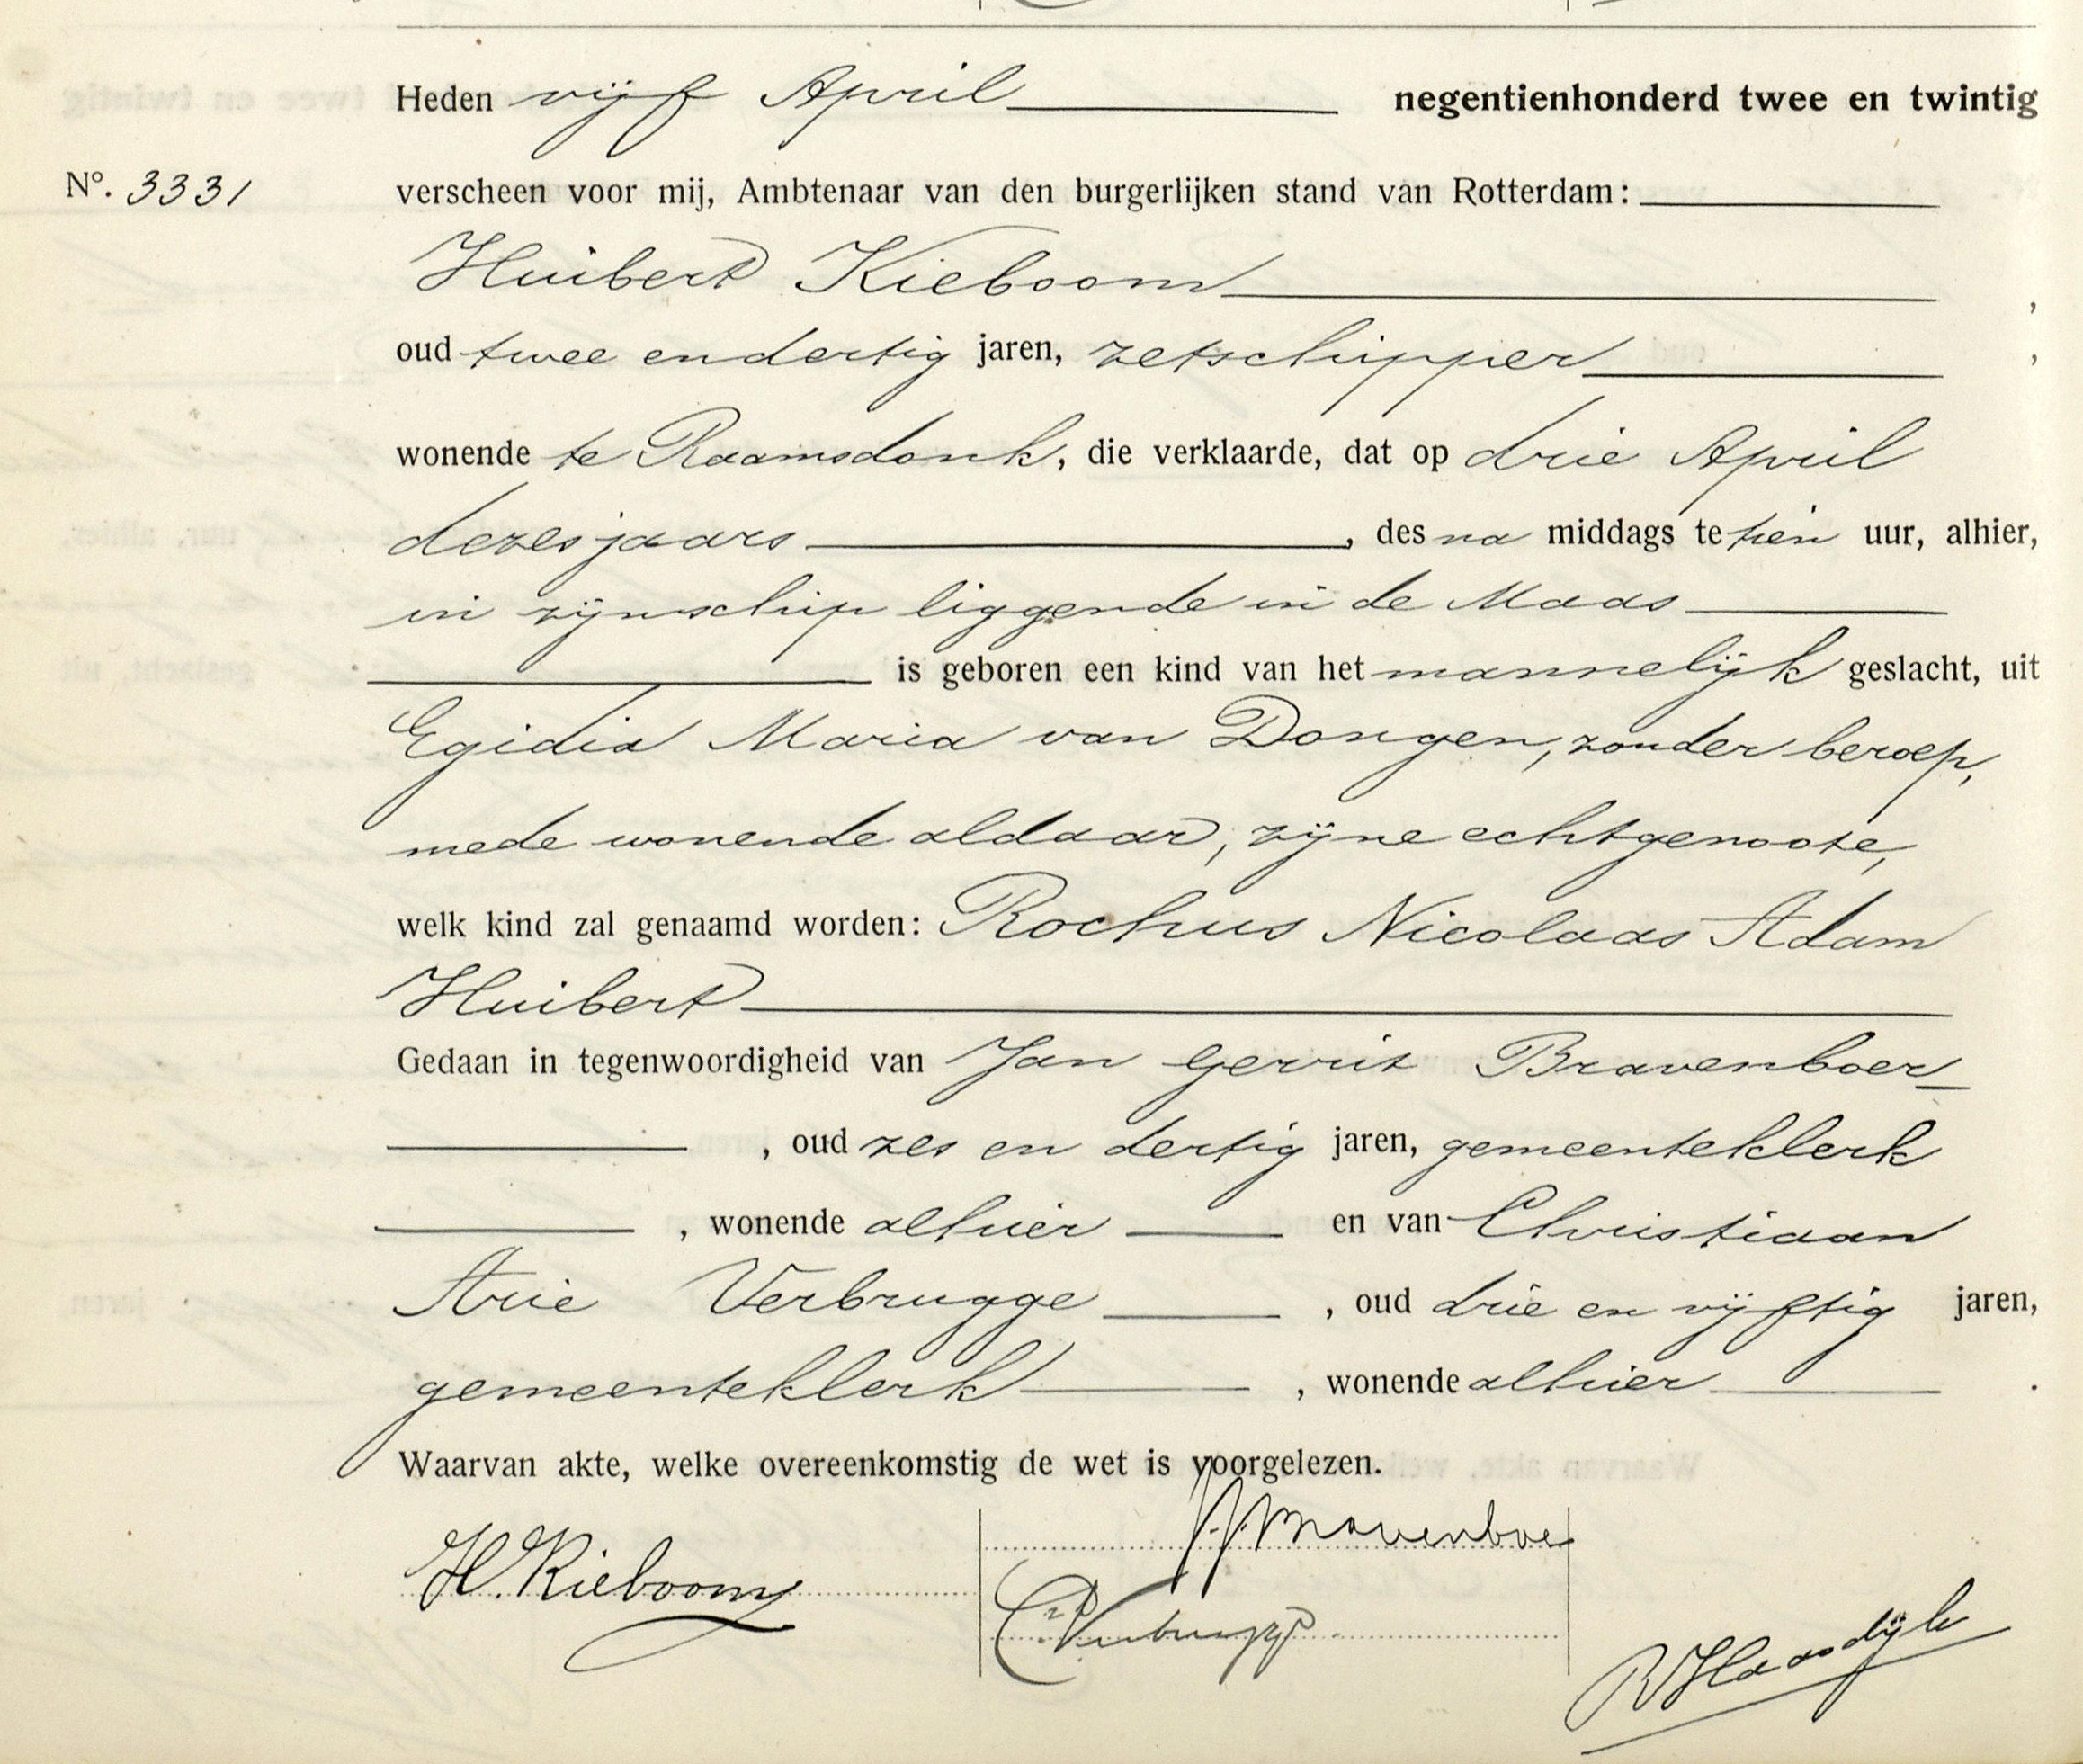 Heden vijf April negentienhonderd twee en twintig
No. 3331 verscheen voor mij, Ambtenaar van den burgerlijken stand van Rotterdam:
Huibert Kieboom ,
oud twee en dertig jaren, zetschipper ,
wonende te Raamsdonk, die verklaarde, dat op drie April
dezes jaars , des na middags te tien uur, alhier,
in zijn schip liggende in de Maas
is geboren een kind van het mannelijk geslacht, uit
Egidia Maria van Dongen, zonder beroep,
mede wonende aldaar, zijne echtgenoote,
welk kind zal genaamd worden: Rochus Nicolaas Adam
Huibert
Gedaan in tegenwoordigheid van Jan Gerrit Bravenboer
, oud zes en dertig jaren, gemeenteklerk
, wonende alhier en van Christiaan
Arie Verbrugge , oud drie en vijftig jaren,
gemeenteklerk , wonende alhier .
Waarvan akte, welke overeenkomstig de wet is voorgelezen.
H. Kieboom